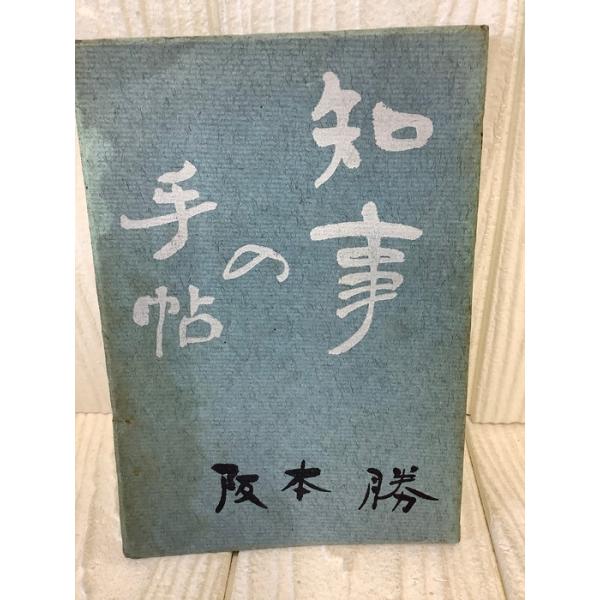 知事
の
手帖
阪本勝